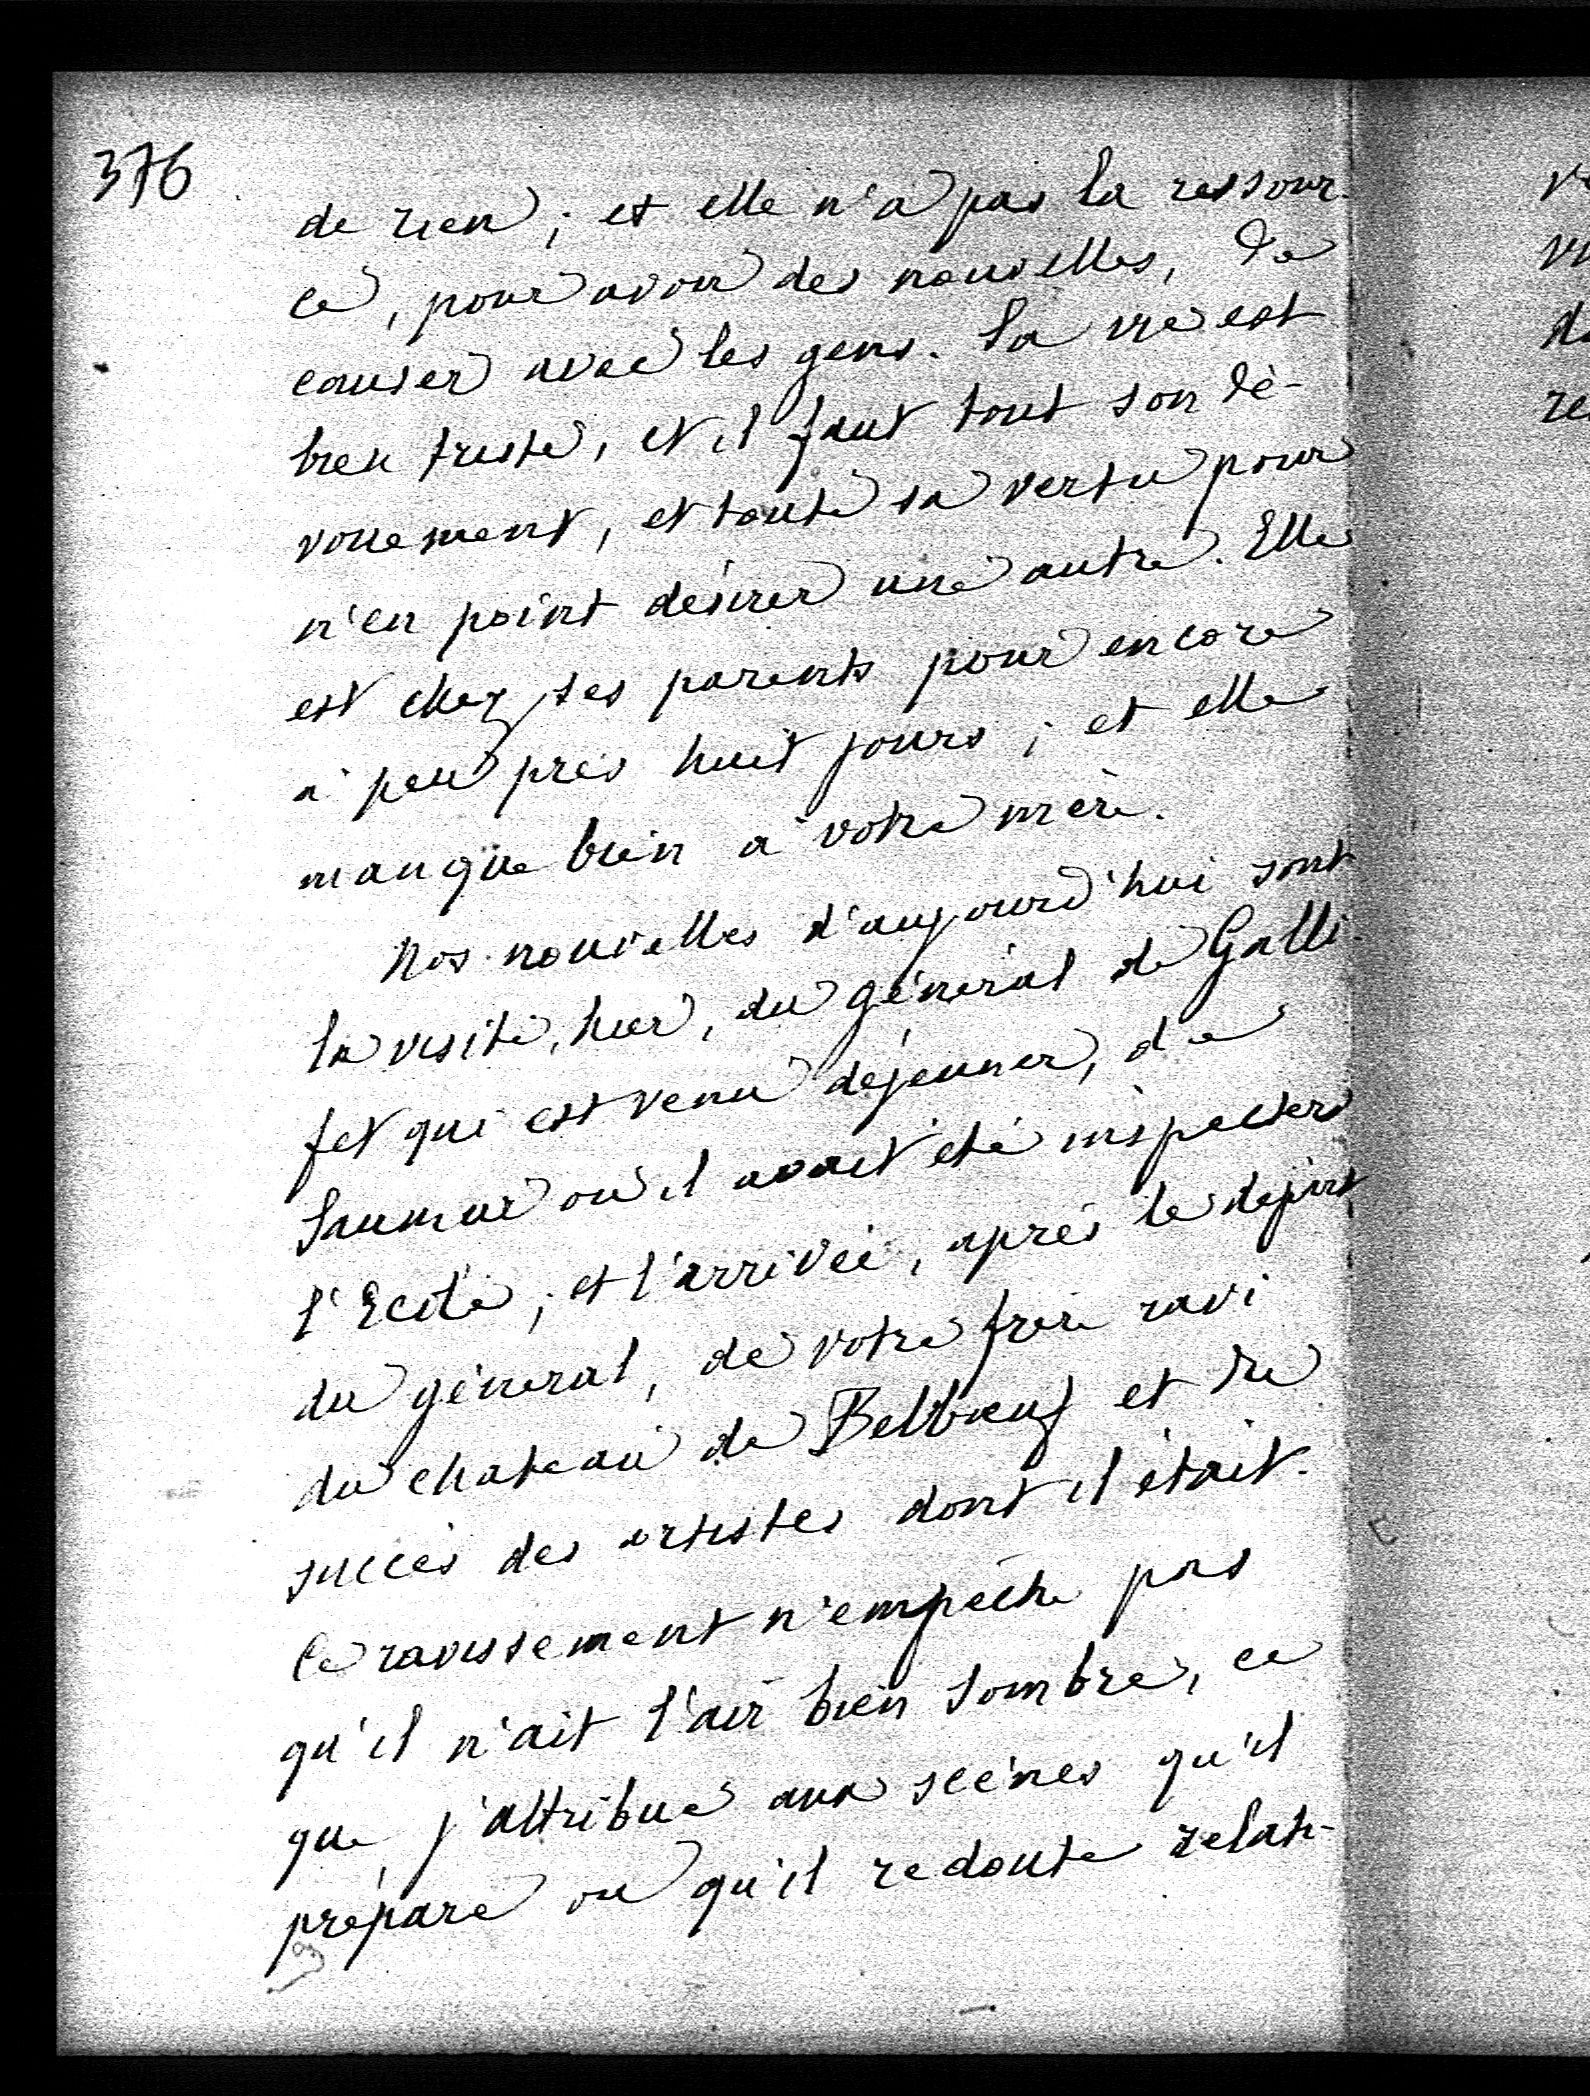 376
de rien ; et elle n'a pas la ressour-
ce, pour avoir des nouvelles, de
causer avec les gens. Sa vie est
bien triste, et il faut tout son dé-
vouement, et toute sa vertu pour
n'en point désirer une autre. Elle
est chez ses parents pour encore
à peu près huit jours ; et elle
manque bien à votre mère.
Nos nouvelles d'aujourd'hui sont
la visite, hier, du général de Galli-
fet qui est venu déjeuner, de
Saumur où il avait été inspecter
l'Ecole ; et l'arrivée, après le départ
du général, de votre frère ravi
du chateau de Belbœuf et du
succès des artistes dont il était.
Ce ravissement n'empêche pas
qu'il n'ait l'air bien sombre, ce
que j'attribue aux scènes qu'il
prépare ou qu'il redoute relati-